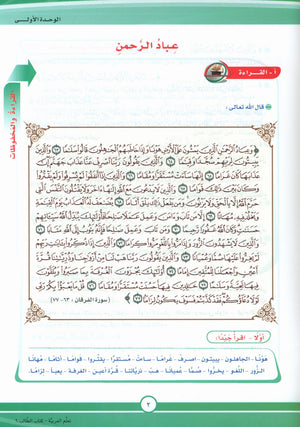 الوحدة الأولى
عِبادُ الرَّحمنِ
أ - القـراءة
قال الله تعالى :
القراءة والمحفوظات
﴿ وَعِبَادُ الرَّحْمَٰنِ الَّذِينَ يَمْشُونَ عَلَى الْأَرْضِ هَوْنًا وَإِذَا خَاطَبَهُمُ الْجَاهِلُونَ قَالُوا سَلَامًا ﴿٦٣﴾ وَالَّذِينَ
يَبِيتُونَ لِرَبِّهِمْ سُجَّدًا وَقِيَامًا ﴿٦٤﴾ وَالَّذِينَ يَقُولُونَ رَبَّنَا اصْرِفْ عَنَّا عَذَابَ جَهَنَّمَ إِنَّ
عَذَابَهَا كَانَ غَرَامًا ﴿٦٥﴾ إِنَّهَا سَاءَتْ مُسْتَقَرًّا وَمُقَامًا ﴿٦٦﴾ وَالَّذِينَ إِذَا أَنْفَقُوا لَمْ يُسْرِفُوا وَلَمْ يَقْتُرُوا
وَكَانَ بَيْنَ ذَٰلِكَ قَوَامًا ﴿٦٧﴾ وَالَّذِينَ لَا يَدْعُونَ مَعَ اللَّهِ إِلَٰهًا آخَرَ وَلَا يَقْتُلُونَ النَّفْسَ الَّتِي
حَرَّمَ اللَّهُ إِلَّا بِالْحَقِّ وَلَا يَزْنُونَ وَمَنْ يَفْعَلْ ذَٰلِكَ يَلْقَ أَثَامًا ﴿٦٨﴾ يُضَاعَفْ لَهُ الْعَذَابُ يَوْمَ الْقِيَامَةِ
وَيَخْلُدْ فِيهِ مُهَانًا ﴿٦٩﴾ إِلَّا مَنْ تَابَ وَآمَنَ وَعَمِلَ عَمَلًا صَالِحًا فَأُولَٰئِكَ يُبَدِّلُ اللَّهُ سَيِّئَاتِهِمْ
حَسَنَاتٍ وَكَانَ اللَّهُ غَفُورًا رَحِيمًا ﴿٧٠﴾ وَمَنْ تَابَ وَعَمِلَ صَالِحًا فَإِنَّهُ يَتُوبُ إِلَى اللَّهِ مَتَابًا ﴿٧١﴾
وَالَّذِينَ لَا يَشْهَدُونَ الزُّورَ وَإِذَا مَرُّوا بِاللَّغْوِ مَرُّوا كِرَامًا ﴿٧٢﴾ وَالَّذِينَ إِذَا ذُكِّرُوا بِآيَاتِ رَبِّهِمْ
لَمْ يَخِرُّوا عَلَيْهَا صُمًّا وَعُمْيَانًا ﴿٧٣﴾ وَالَّذِينَ يَقُولُونَ رَبَّنَا هَبْ لَنَا مِنْ أَزْوَاجِنَا وَذُرِّيَّاتِنَا قُرَّةَ
أَعْيُنٍ وَاجْعَلْنَا لِلْمُتَّقِينَ إِمَامًا ﴿٧٤﴾ أُولَٰئِكَ يُجْزَوْنَ الْغُرْفَةَ بِمَا صَبَرُوا وَيُلَقَّوْنَ
فِيهَا تَحِيَّةً وَسَلَامًا ﴿٧٥﴾ خَالِدِينَ فِيهَا حَسُنَتْ مُسْتَقَرًّا وَمُقَامًا ﴿٧٦﴾ قُلْ مَا يَعْبَأُ بِكُمْ رَبِّي
لَوْلَا دُعَاؤُكُمْ فَقَدْ كَذَّبْتُمْ فَسَوْفَ يَكُونُ لِزَامًا ﴿٧٧﴾ ﴾
(سورة الفرقان : ٦٣- ٧٧)
أوّلا - اقرأ جيّدًا :
هَوْنًا - الجاهلون - يبيتون - اصرف - غرامًا - ساءت - مُستقرًّا - يقتُروا - قوامًا - أثامًا - مُهانًا
الزّور - اللّغو - يخرّوا - صُمًّا - عُميانًا - هَبْ - ذرّيّاتنا - قُرّة أعين - الغرفة - يعبأ - لزامًا.
٢
تعلّم العربيّة - كتاب الطّالب ٦